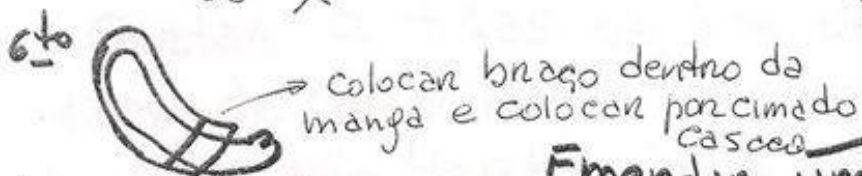 6to
colocar braço dentro da
manga e colocar por cima do
casaco
Emendar uma